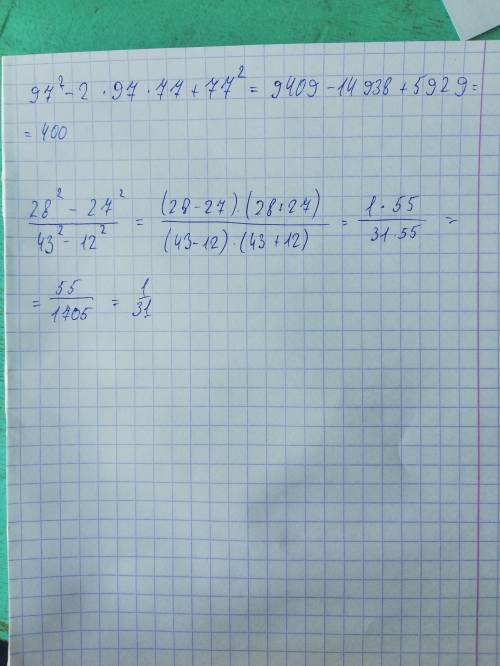 97² - 2 · 97 · 77 + 77² = 9409 - 14938 + 5929 =
= 400
28² - 27² / 43² - 12² = (28-27) · (28+27) / (43-12) · (43+12) = 1 · 55 / 31 · 55 =
= 55 / 1705 = 1 / 31